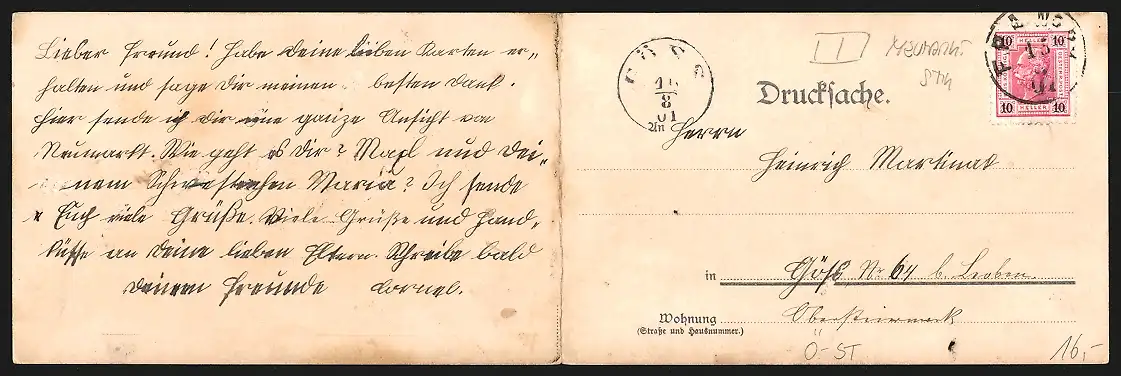 Lieber Freund! Habe deine lieben Karten er-
halten und sage dir meinen besten Dank.
Hier sende ich dir eine ganze Ansicht von
Neumarkt. Wie geht es dir? Maxl und dei-
nem Schwesterchen Maria? Ich sende
Euch viele Grüße. Viele Grüße und Hand-
küsse an deine lieben Eltern. Schreibe bald
deinem Freunde Cornel.
GÖSS
15
8
01
An
I
NEUMARKT
STM
Drucksache.
10 HELLER 10
10 HELLER 10
01
Herrn
Heinrich
in Göß, Nr 64 b. Leoben.
Wohnung Obersteiermark
(Straße und Hausnummer.)
Ö-ST
16,-